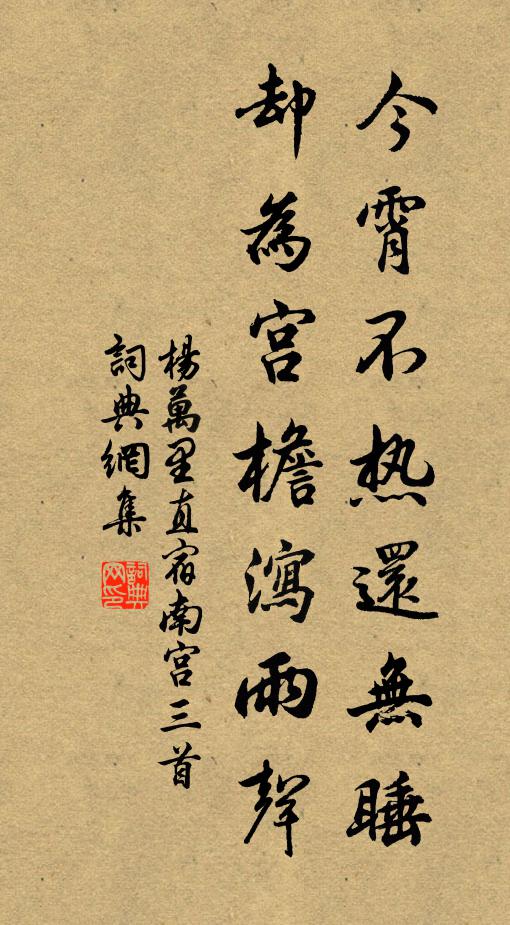 今霄不热還無睡
却為宫檐瀉雨聲
楊萬里直宿南宫三首
詞典網集
詞典网印